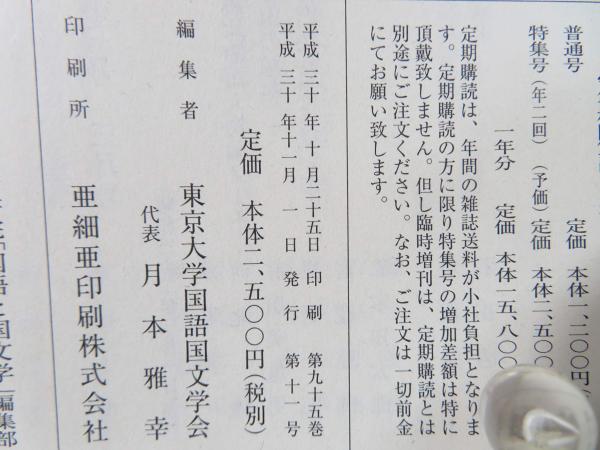 普通号　定価　本体一、二〇〇円
特集号（年二回）　（予価）定価　本体二、五〇〇
一年分　定価　本体一五、八〇〇
定期購読は、年間の雑誌送料が小社負担となりま
す。定期購読の方に限り特集号の増加差額は特に
頂戴致しません。但し臨時増刊は、定期購読とは
別途にご注文ください。なお、ご注文は一切前金
にてお願い致します。
定価　本体二、五〇〇円（税別）
平成三十年十月二十五日　印刷　第九十五巻
平成三十年十一月一日　発行　第十一号
編集者　東京大学国語国文学会
代表　月本雅幸
印刷所　亜細亜印刷株式会社
「国語と国文学」編集部